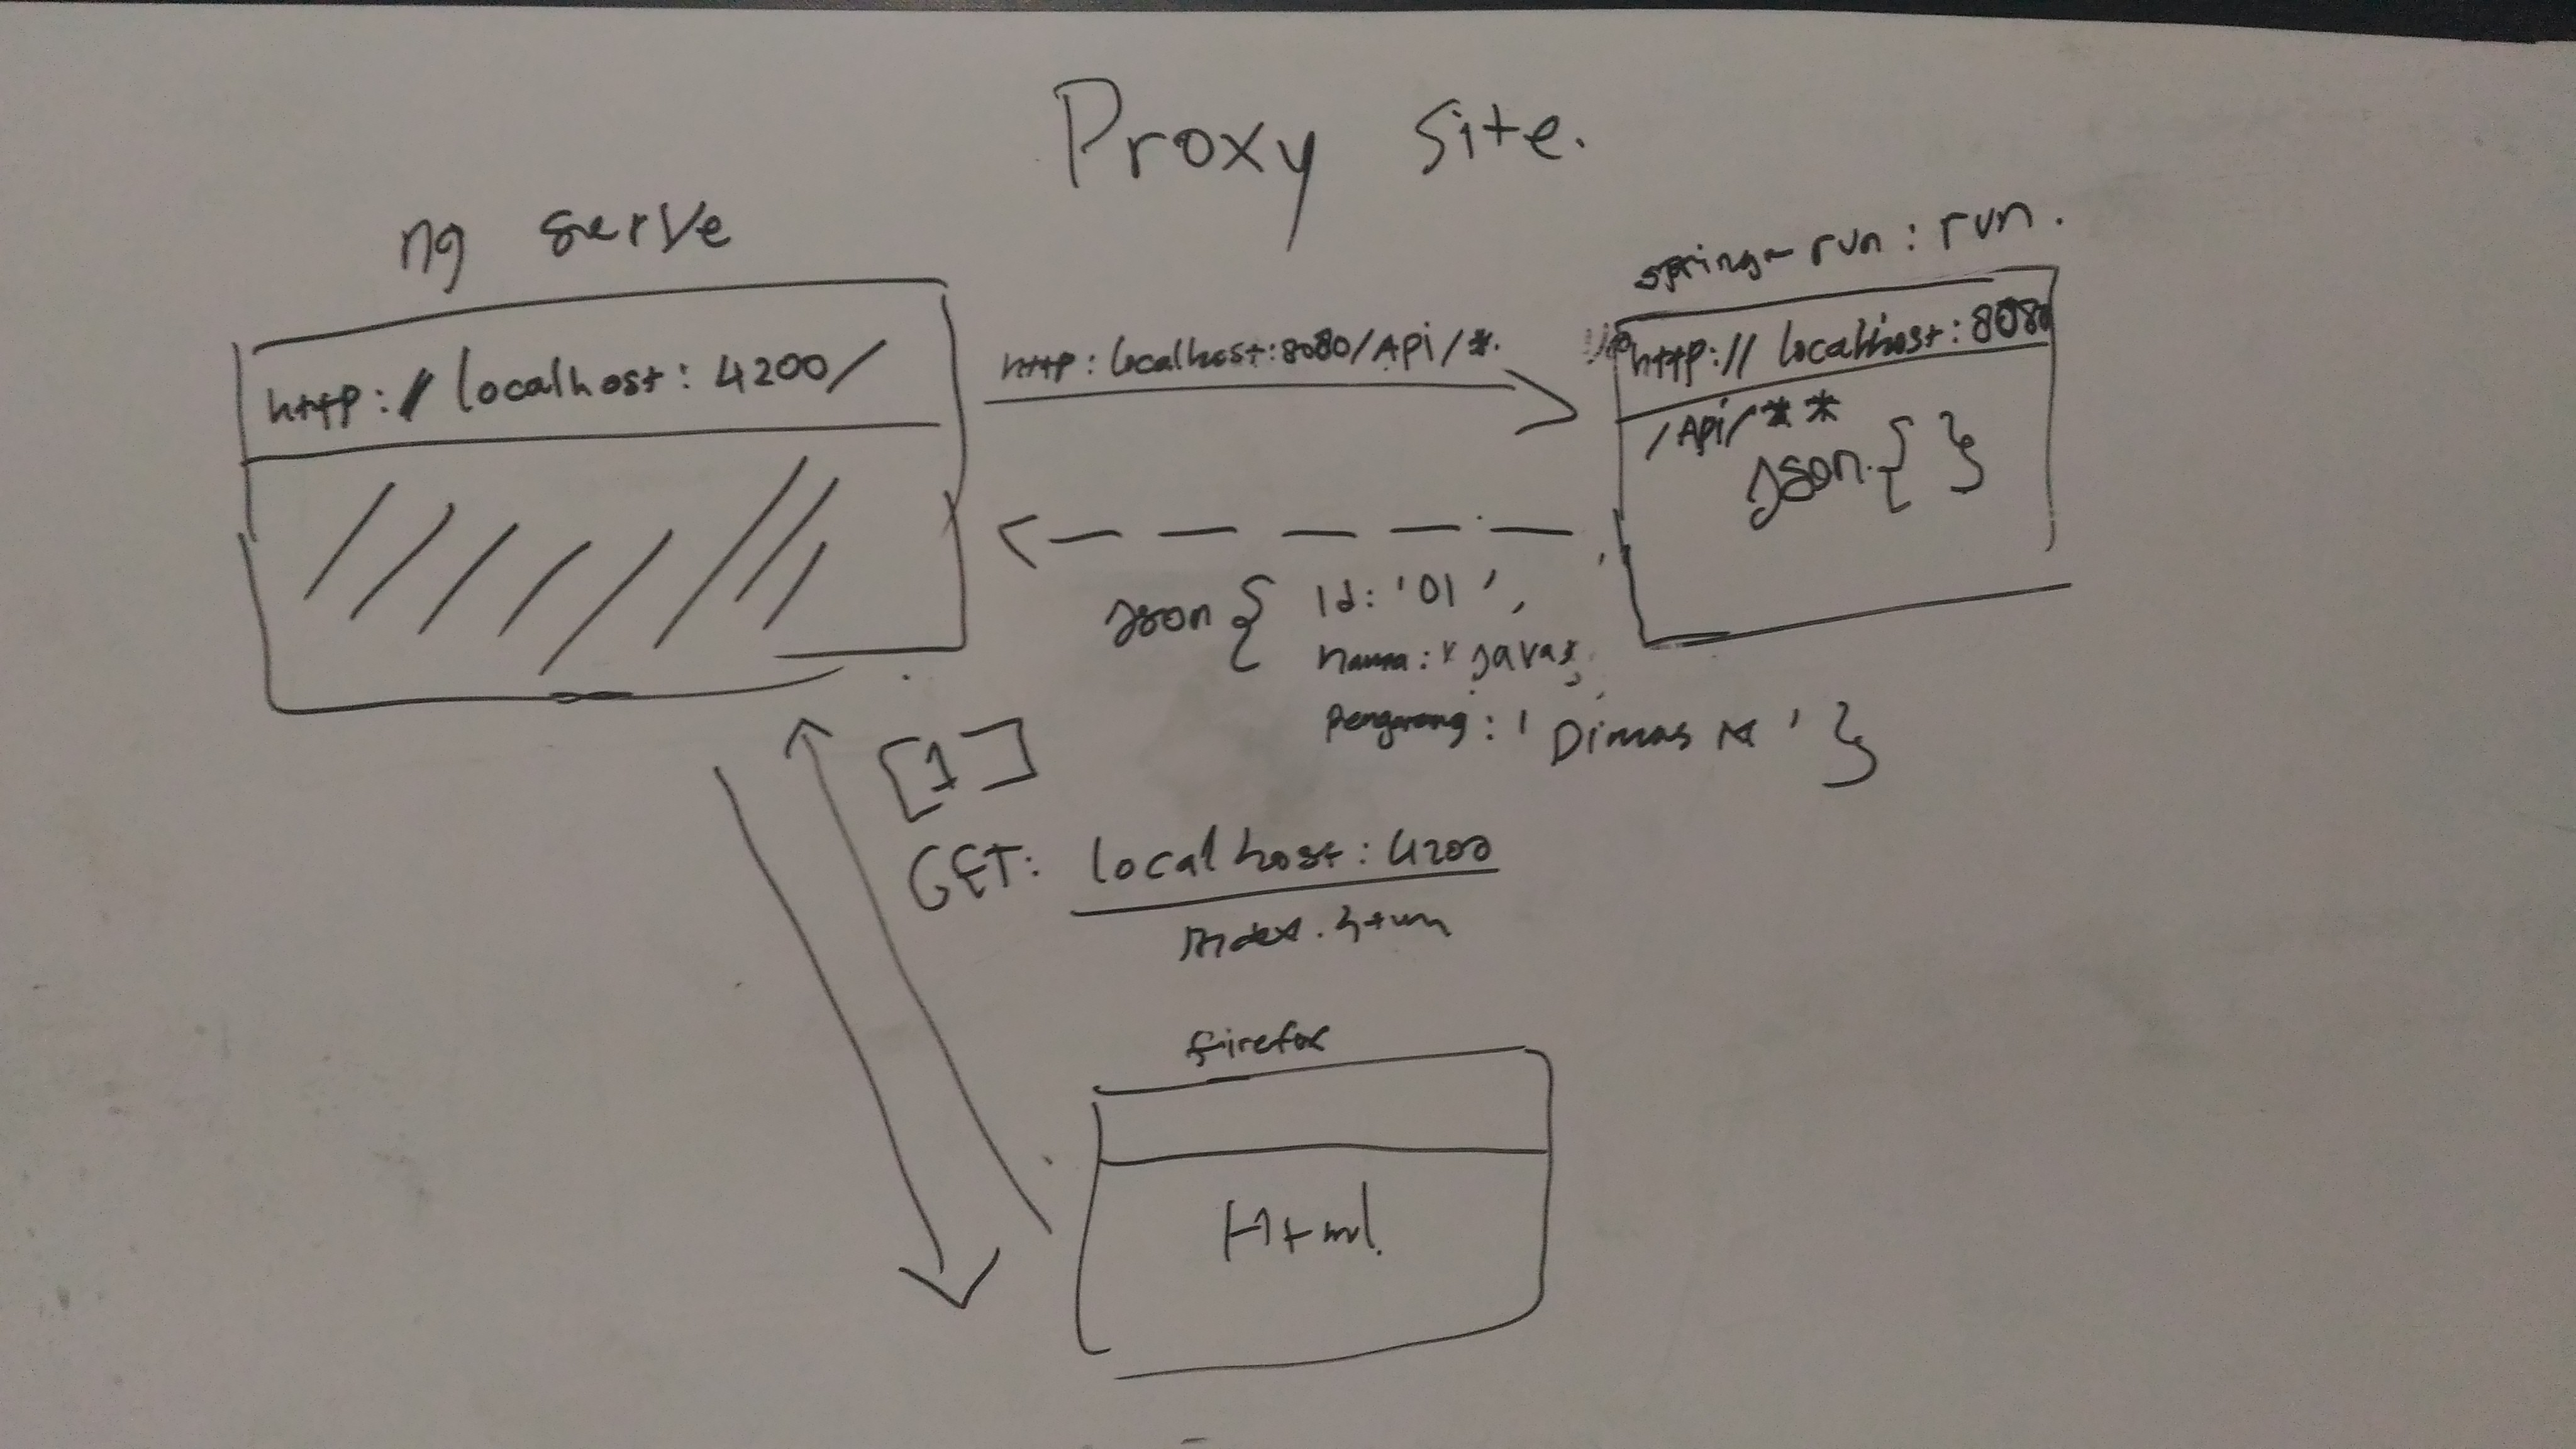 Proxy site.
ng serve
http:// localhost: 4200/
http: localhost:8080/Api/*.
spring-run: run.
http:// localhost:8080
/Api/**
Json.{ }
Json { Id: '01',
nama: 'Java',
pengarang: 'Dimas M' }
[1]
GET: localhost:4200
index.htm
firefox
Html.